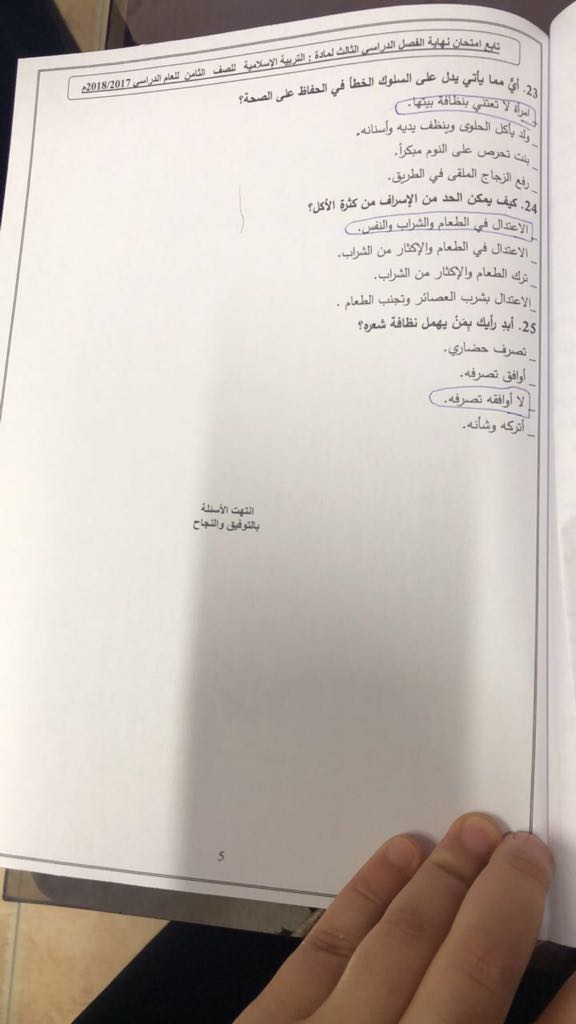 تابع امتحان نهاية الفصل الدراسي الثالث لمادة : التربية الإسلامية للصف الثامن للعام الدراسي 2018/2017م
23. أيُّ مما يأتي يدل على السلوك الخطأ في الحفاظ على الصحة؟
_ امرأة لا تعتني بنظافة بيتها.
_ ولد يأكل الحلوى وينظف يديه وأسنانه.
_ بنت تحرص على النوم مبكراً.
_ رفع الزجاج الملقى في الطريق.
24. كيف يمكن الحد من الإسراف من كثرة الأكل؟
_ الاعتدال في الطعام والشراب والنفس.
_ الاعتدال في الطعام والإكثار من الشراب.
_ ترك الطعام والإكثار من الشراب.
_ الاعتدال بشرب العصائر وتجنب الطعام .
25. أبدِ رأيك بِمَنْ يهمل نظافة شعره؟
_ تصرف حضاري.
_ أوافق تصرفه.
_ لا أوافقه تصرفه.
_ أتركه وشأنه.
انتهت الأسئلة
بالتوفيق والنجاح
5